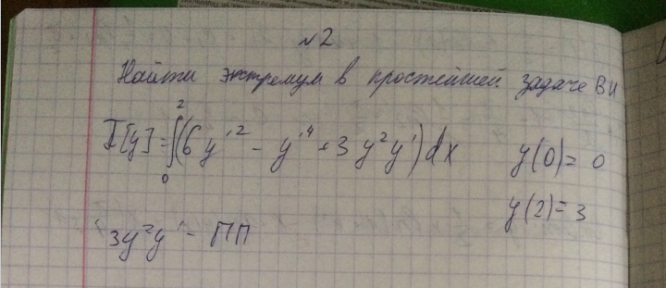 №2
Найти экстремум в простейшей задаче ВИ
I[y]=∫₀²(6y'² - y'⁴ + 3y²y')dx y(0)=0
y(2)=3
3y²y' - ПП